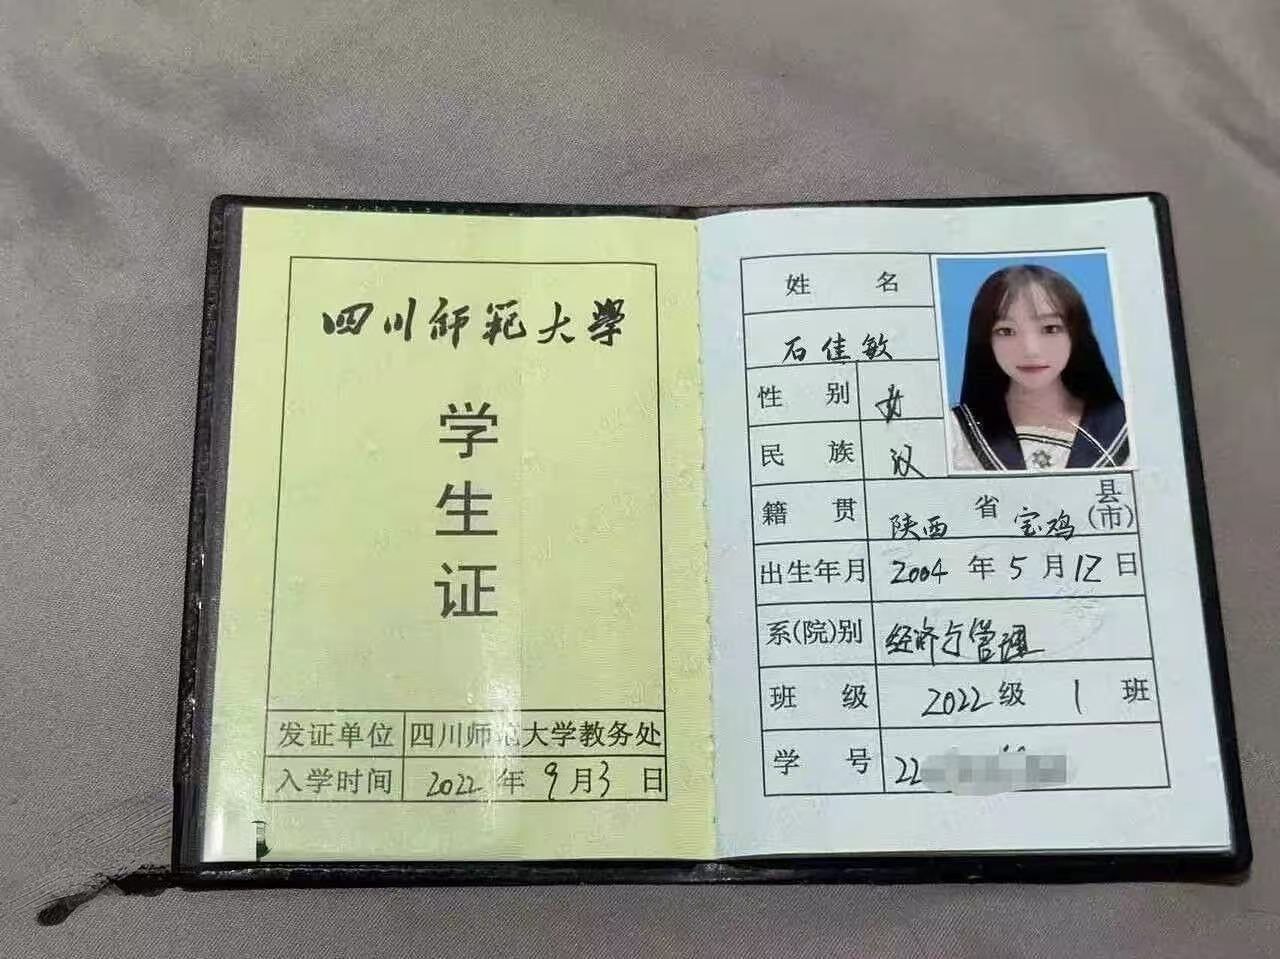 四川师范大学
学
生
证
发证单位 四川师范大学教务处
入学时间 2022年9月3日
姓名
石佳敏
性别 女
民族 汉
籍贯 陕西省宝鸡县(市)
出生年月 2004年5月12日
系(院)别 经济与管理
班级 2022级1班
学号 22